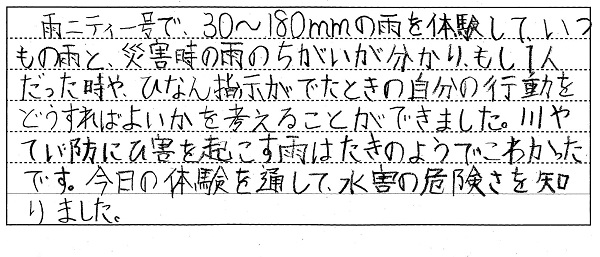 雨ニティー号で、30～180mmの雨を体験して、いつ
もの雨と、災害時の雨のちがいが分かり、もし1人
だった時や、ひなん指示がでたときの自分の行動を
どうすればよいかを考えることができました。川や
てい防にひ害を起こす雨はたきのようでこわかった
です。今日の体験を通して、水害の危険さを知
りました。